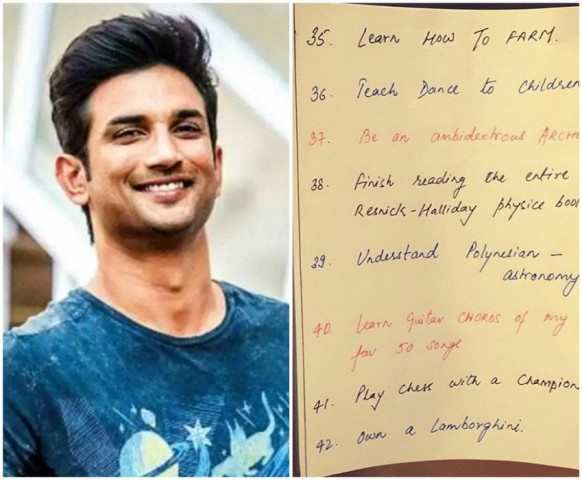 35. Learn HOW To FARM.
36. Teach Dance to Children
37. Be an ambidextrous ARCHE
38. Finish reading the entire
Resnick-Halliday physics boo
39. Understand Polynesian -
astronomy
40. Learn Guitar CHORDS of my
fav. 50 songs
41. Play Chess with a Champion
42. Own a Lamborghini.